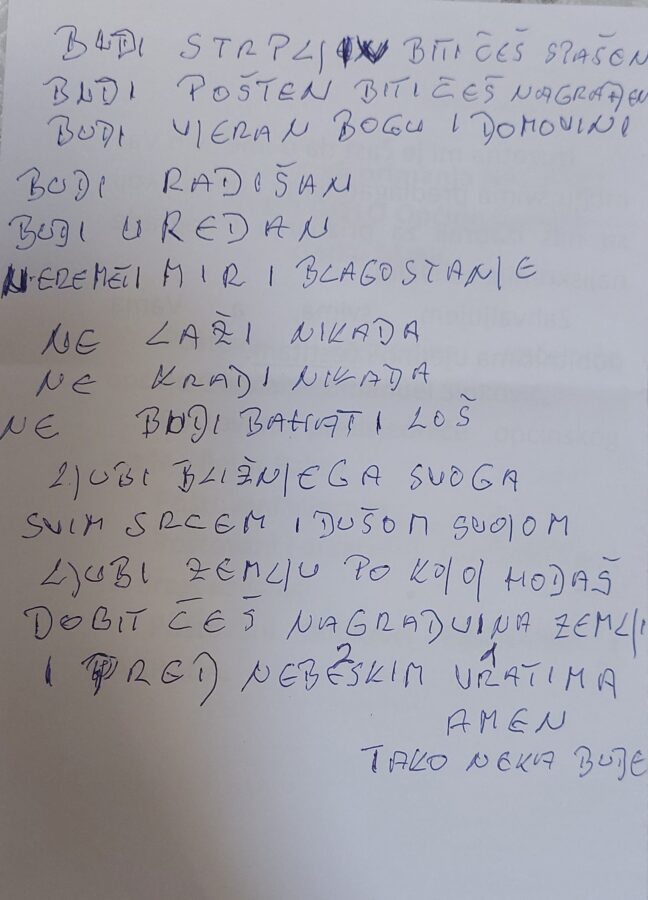 BUDI STRPLJIV BITI ČEŠ SPAŠEN
BUDI POŠTEN BITI ČEŠ NAGRAĐEN
BUDI VJERAN BOGU I DOMOVINI
BUDI RADIŠAN
BUDI UREDAN
NEREMETI MIR I BLAGOSTANJE
NE LAŽI NIKADA
NE KRADI NIKADA
NE BUDI BAHAT I LOŠ
LJUBI BLIŽNJEGA SVOGA
SVIM SRCEM I DUŠOM SVOJOM
LJUBI ZEMLJU PO KOJOJ HODAŠ
DOBIT ČEŠ NAGRADU I NA ZEMLJI
I PRED NEBESKIM 2 VRATIMA 1
AMEN
TAKO NEKA BUDE